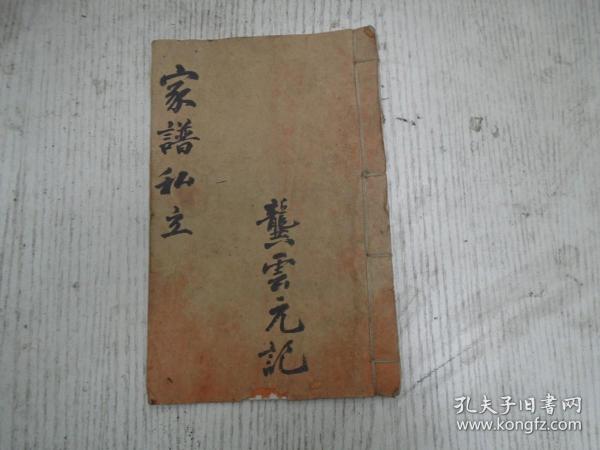 家譜私立
龔雲元記
孔夫子旧書网
www.kongfz.com